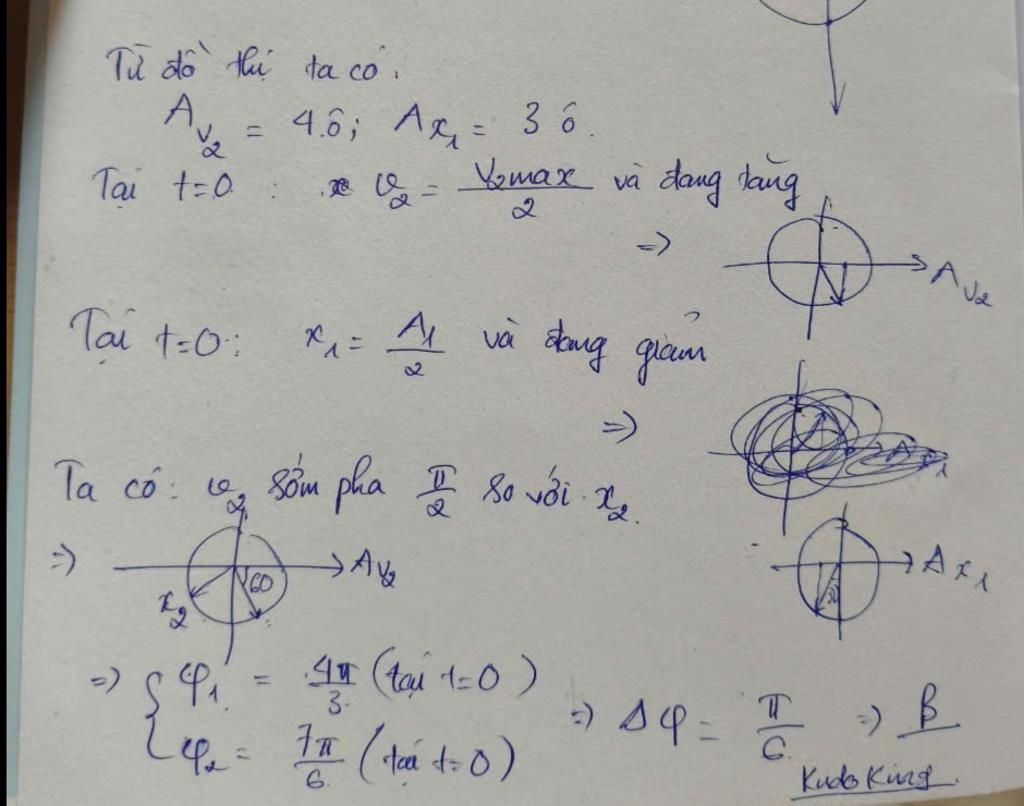 Từ đồ thị ta có:
A_{v_2} = 4 ô; A_{x_1} = 3 ô.
Tại t=0 : v_2 = \frac{V_{2max}}{2} và đang tăng
=> A_{v_2}
Tại t=0: x_1 = \frac{A_1}{2} và đang giảm
=>
Ta có: v_2 sớm pha \frac{π}{2} so với x_2.
=> x_2 60 A_{v_2} A_{x_1}
=> { φ_1 = \frac{4π}{3} (tại t=0)
φ_2 = \frac{7π}{6} (tại t=0) => Δφ = \frac{π}{6} => B
Kudo King